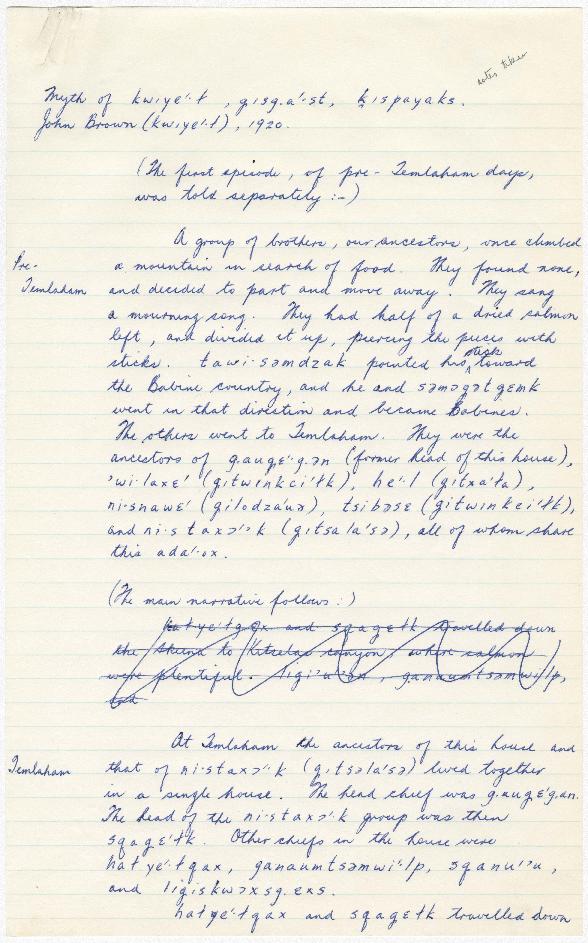 notes taken
Myth of kwıye'·t, gısg.a'·st, ḳıspayaks.
John Brown (kwıye'·t), 1920.
(The first episode, of pre-Temlaham days,
was told separately :-)
A group of brothers, our ancestors, once climbed
Pre-
Temlaham
a mountain in search of food. They found none,
and decided to part and move away. They sang
a mourning song. They had half of a dried salmon
left, and divided it up, piercing the pieces with
sticks. tawi·səmdzak pointed his stick toward
the Babine country, and he and səməgət gɛmk
went in that direction and became Babines.
The others went to Temlaham. They were the
ancestors of g.augɛ'·g.ən (former head of this house),
'wi·laxɛ' (gıtwınkci'łk), he'·l (gıtxa'ła),
nı·snawɛ' (gılodza'uə), tsibəsɛ (gıtwınkci'łk),
and nı·staxɔ'·k (gıtsala'sə), all of whom share
this ada'·ox.
(The main narrative follows :)
hatyɛ'·tgax and sqagɛtk travelled down
the Skeena to Kitselas canyon, where salmon
were plentiful. ganaumtsəmwi'·lp,
At Temlaham the ancestors of this house and
Temlaham
that of nı·staxɔ'·k (g.ıtsəla'sə) lived together
in a single house. The head chief was g.augɛ'g.ən.
The head of the nı·staxɔ'·k group was then
sqagɛ'tk. Other chiefs in the house were
hatyɛ'·tqax, ganaumtsəmwi'·lp, sqanu'ɔu,
and lıgıskwəxsg.ɛxs.
hatyɛ'·tqax and sqagɛtk travelled down